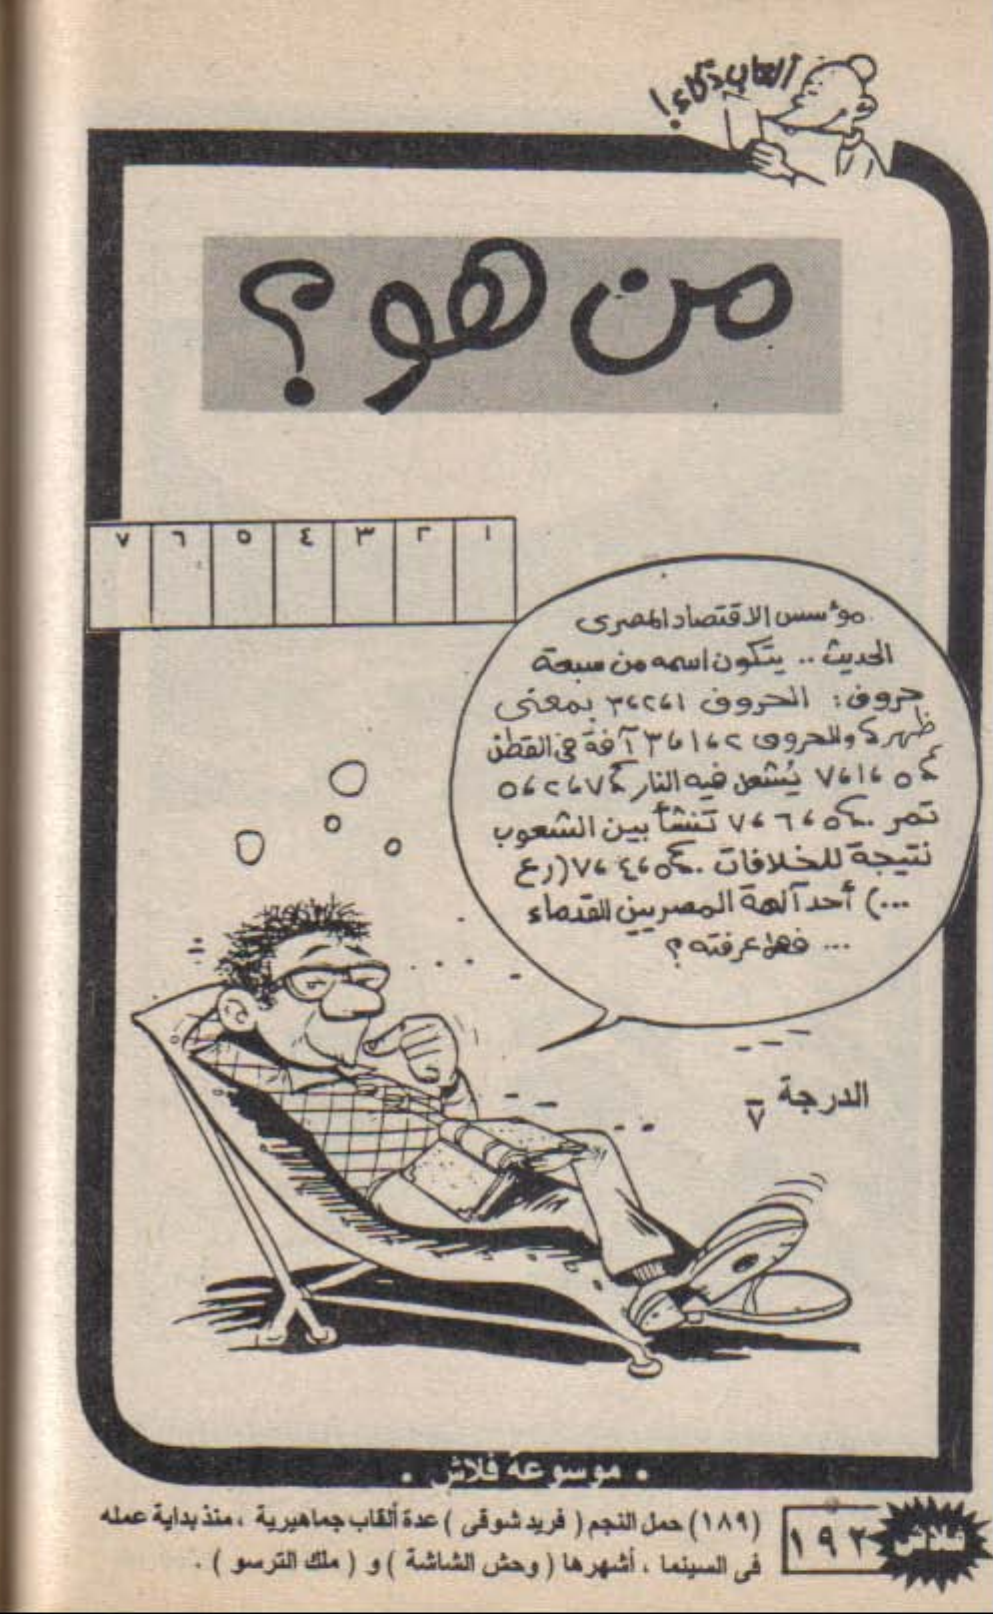 ألعاب ذكاء !
من هو ؟
١ ٢ ٣ ٤ ٥ ٦ ٧
مؤسس الاقتصاد المصرى
الحديث .. يتكون اسمه من سبعة
حروف : الحروف ١، ٢، ٣ بمعنى
ظهر، والحروف ٢، ١، ٣ آفة فى القطن
، ٥، ١، ٧ يُشعل فيه النار، ٧، ٢، ٥
تمر .. ٥، ٦، ٧ تنشأ بين الشعوب
نتيجة للخلافات .. ٥، ٤، ٧ (رع
...) أحد آلهة المصريين القدماء
... فهل عرفته ؟
الدرجة ٧
• موسوعة فلاش •
(١٨٩) حمل النجم ( فريد شوقى ) عدة ألقاب جماهيرية ، منذ بداية عمله
فى السينما ، أشهرها ( وحش الشاشة ) و ( ملك الترسو ) .
فلاش ١٩٢